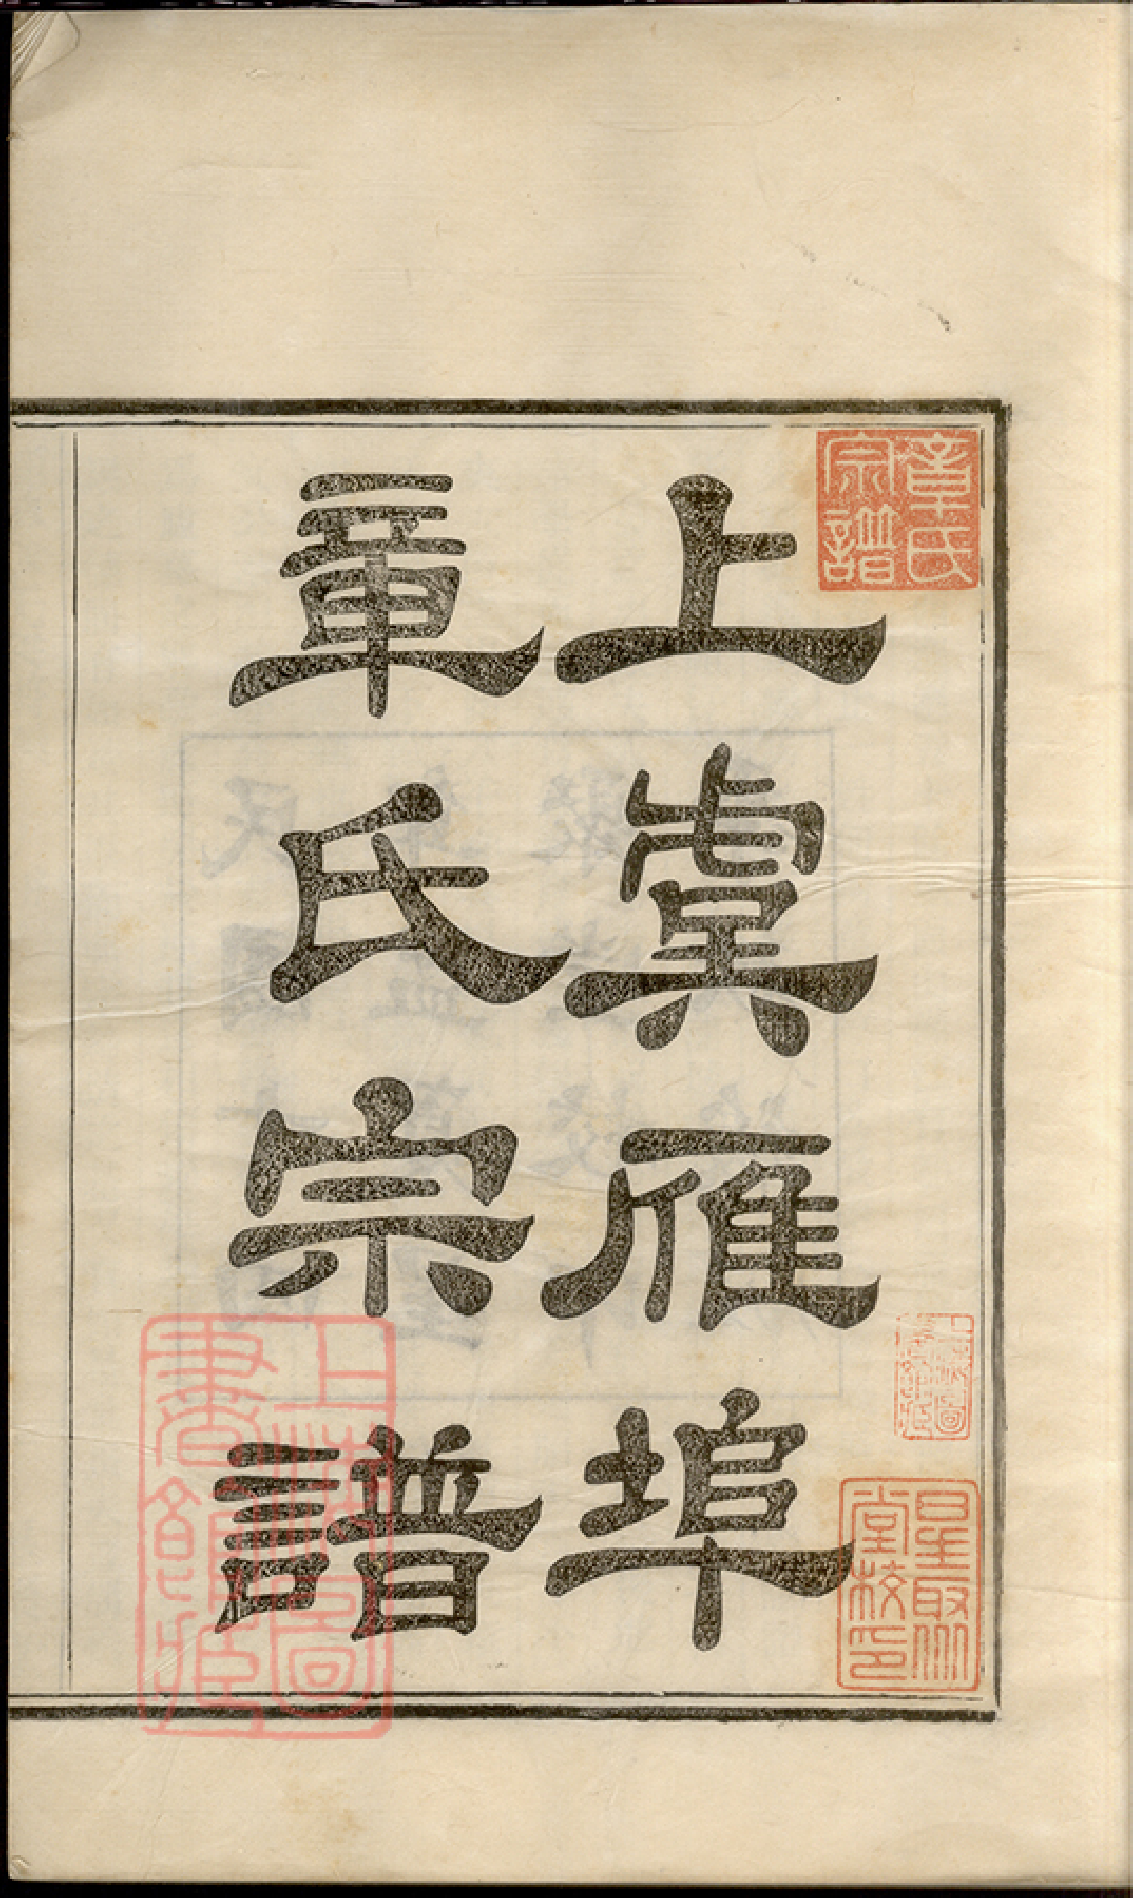 上虞雁埠
章氏宗譜
章氏宗譜
星聚堂校印
上海圖書館藏